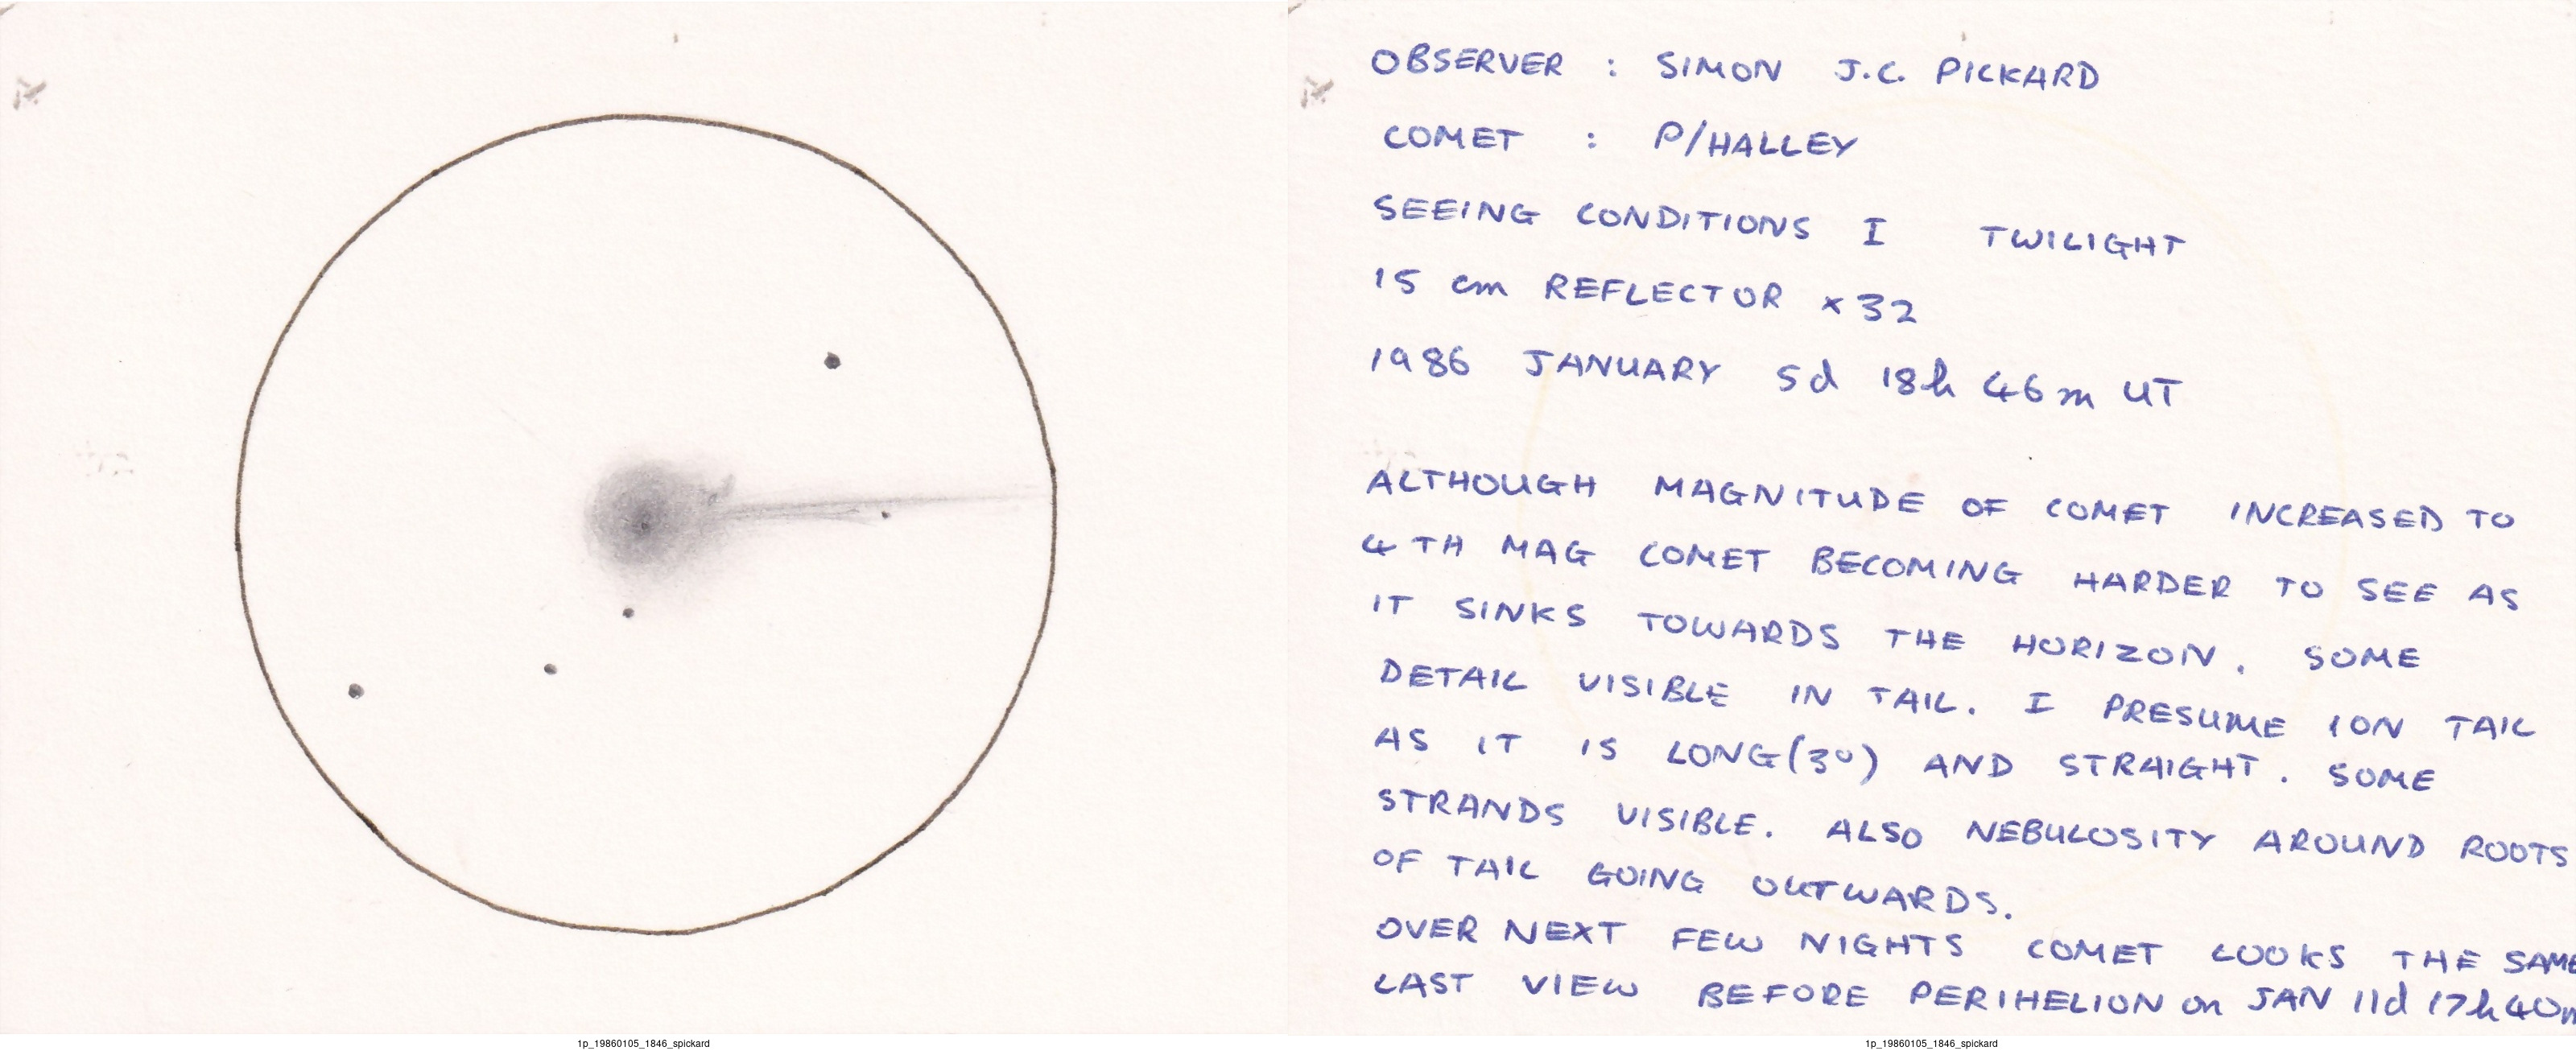 OBSERVER : SIMON J.C. PICKARD
COMET : P/HALLEY
SEEING CONDITIONS I TWILIGHT
15 cm REFLECTOR x32
1986 JANUARY 5d 18h 46m UT
ALTHOUGH MAGNITUDE OF COMET INCREASED TO
4TH MAG COMET BECOMING HARDER TO SEE AS
IT SINKS TOWARDS THE HORIZON. SOME
DETAIL VISIBLE IN TAIL. I PRESUME ION TAIL
AS IT IS LONG (3°) AND STRAIGHT. SOME
STRANDS VISIBLE. ALSO NEBULOSITY AROUND ROOTS
OF TAIL GOING OUTWARDS.
OVER NEXT FEW NIGHTS COMET LOOKS THE SAME
LAST VIEW BEFORE PERIHELION on JAN 11d 17h 40m
1p_19860105_1846_spickard
1p_19860105_1846_spickard